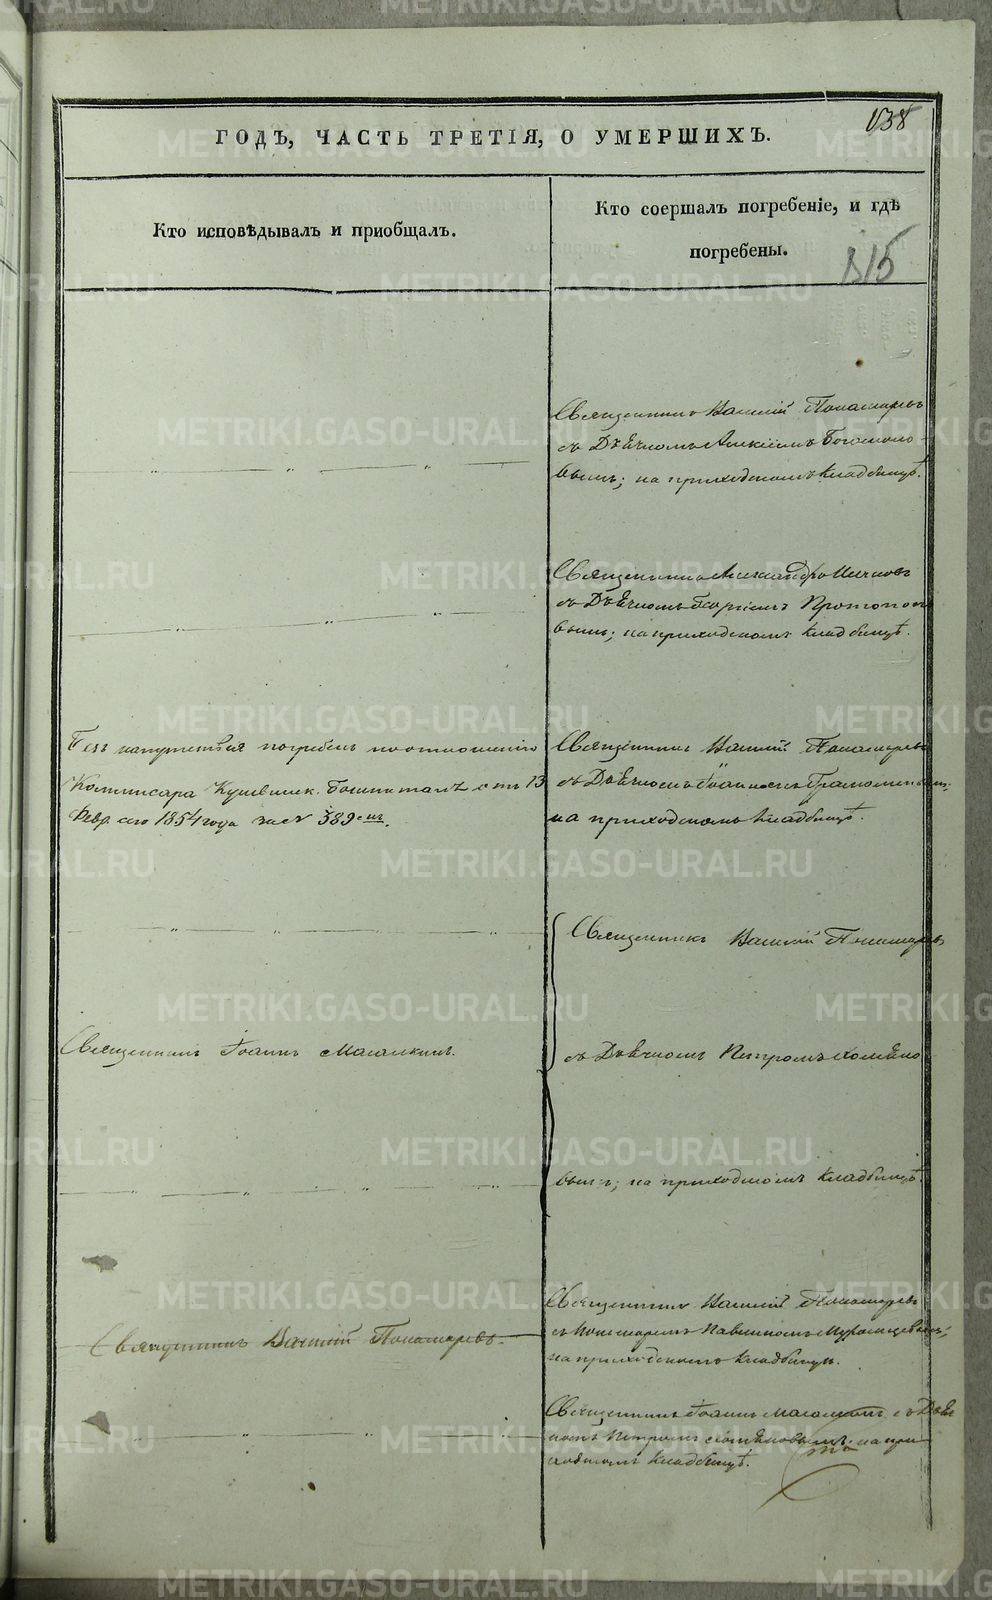 138
ГОДЪ, ЧАСТЬ ТРЕТІЯ, О УМЕРШИХЪ.
Кто исповѣдывалъ и приобщалъ.
Кто соершалъ погребеніе, и гдѣ
погребены.
815
Священникъ Василій Пономаревъ
съ Дьячкомъ Алексѣемъ Богомоло-
вымъ; на приходскомъ кладбищѣ.
Священникъ Александръ
съ Дьячкомъ Георгіемъ Протопопо
вымъ; на приходскомъ кладбищѣ.
Безъ напутствія погребенъ по отношенію
Коммисара Кушвинск. Госпиталя отъ 13
Февр. сего 1854 года за № 389емъ.
Священникъ Василій Пономаревъ
съ Дьячкомъ Іоанномъ
на приходскомъ кладбищѣ.
Священникъ Василій Пономаревъ
Священникъ Іоаннъ
съ Дьячкомъ Петромъ
вымъ; на приходскомъ кладбищѣ.
Священникъ Василій Пономаревъ
Священникъ Василій Пономаревъ
съ Пономаремъ
на приходскомъ кладбищѣ.
Священникъ Іоаннъ съ Дьяч
комъ Петромъ на при
ходскомъ кладбищѣ.
METRIKI.GASO-URAL.RU